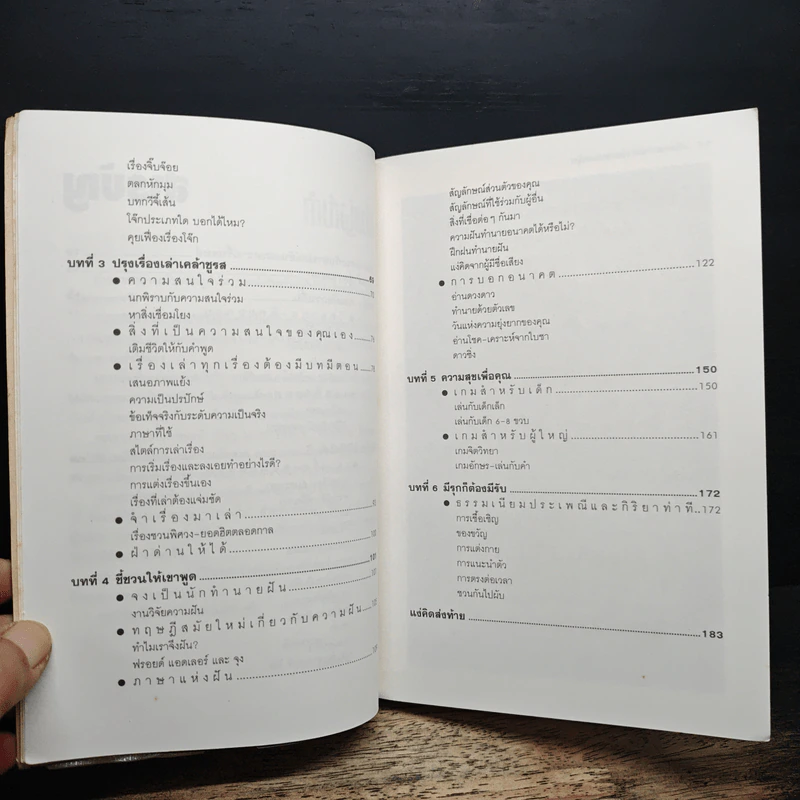 เรื่องจิ๊บจ๊อย
ตลกหักมุม
บทกวีจี้เส้น
โจ๊กประเภทใด บอกได้ไหม?
คุยเฟื่องเรื่องโจ๊ก
บทที่ 3 ปรุงเรื่องเล่าเคล้าชูรส
● ความสนใจร่วม
นกพิราบกับความสนใจร่วม
หาสิ่งเชื่อมโยง
● สิ่งที่เป็นความสนใจของคุณเอง
เติมชีวิตให้กับคำพูด
● เรื่องเล่าทุกเรื่องต้องมีบทมีตอน
เสนอภาพแย้ง
ความเป็นปรปักษ์
ข้อเท็จจริงกับระดับความเป็นจริง
ภาษาที่ใช้
สไตล์การเล่าเรื่อง
การเริ่มเรื่องและลงเอยทำอย่างไรดี?
การแต่งเรื่องขึ้นเอง
เรื่องที่เล่าต้องแจ่มชัด
● จำเรื่องมาเล่า
เรื่องชวนพิศวง-ยอดฮิตตลอดกาล
● ฝ่าด่านให้ได้
บทที่ 4 ชี้ชวนให้เขาพูด
● จงเป็นนักทำนายฝัน
งานวิจัยความฝัน
● ทฤษฎีสมัยใหม่เกี่ยวกับความฝัน
ทำไมเราจึงฝัน?
ฟรอยด์ แอดเลอร์ และ จุง
● ภาษาแห่งฝัน
สัญลักษณ์ส่วนตัวของคุณ
สัญลักษณ์ที่ใช้ร่วมกับผู้อื่น
สิ่งที่เชื่อต่อๆ กันมา
ความฝันทำนายอนาคตได้หรือไม่?
ฝึกฝนทำนายฝัน
แง่คิดจากผู้มีชื่อเสียง
● การบอกอนาคต 122
อ่านดวงดาว
ทำนายด้วยตัวเลข
วันแห่งความยุ่งยากของคุณ
อ่านโชค-เคราะห์จากใบชา
ดาวซิง
บทที่ 5 ความสุขเพื่อคุณ 150
● เกมสำหรับเด็ก 150
เล่นกับเด็กเล็ก
เล่นกับเด็ก 6-8 ขวบ
● เกมสำหรับผู้ใหญ่ 161
เกมจิตวิทยา
เกมอักษร-เล่นกับคำ
บทที่ 6 มีรุกก็ต้องมีรับ 172
● ธรรมเนียมประเพณีและกิริยาท่าที 172
การเชื้อเชิญ
ของขวัญ
การแต่งกาย
การแนะนำตัว
การตรงต่อเวลา
ชวนกันไปผับ
แง่คิดส่งท้าย 183